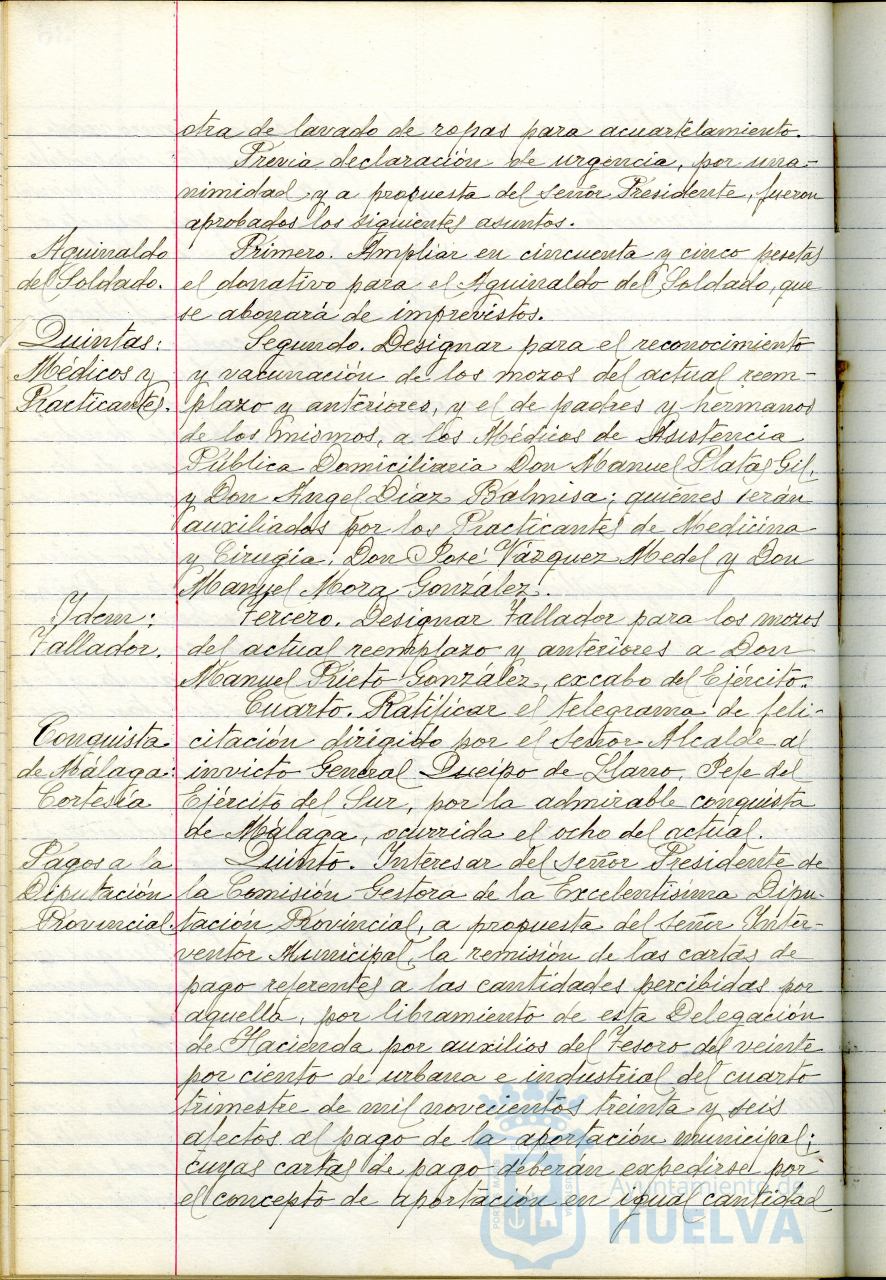 otra de lavado de ropas para acuartelamiento.
Previa declaración de urgencia, por una-
nimidad y a propuesta del señor Presidente, fueron
aprobados los siguientes asuntos.
Aguinaldo
del Soldado.
Primero. Ampliar en cincuenta y cinco pesetas
el donativo para el Aguinaldo del Soldado, que
se abonará de imprevistos.
Quintas:
Médicos y
Practicantes.
Segundo. Designar para el reconocimiento
y vacunación de los mozos del actual reem-
plazo y anteriores, y el de padres y hermanos
de los mismos, a los Médicos de Asistencia
Pública Domiciliaria Don Manuel Platas Gil,
y Don Angel Díaz Balmisa; quiénes serán
auxiliados por los Practicantes de Medicina
y Cirugia, Don José Vázquez Medel y Don
Manuel Mora González.
Idem:
Tallador.
Tercero. Designar Tallador para los mozos
del actual reemplazo y anteriores a Don
Manuel Prieto González, excabo del Ejército.
Conquista
de Málaga:
Cortesía
Cuarto. Ratificar el telegrama de feli-
citación dirigido por el señor Alcalde al
invicto General Queipo de Llano, Jefe del
Ejército del Sur, por la admirable conquista
de Málaga, ocurrida el ocho del actual.
Pagos a la
Diputación
Provincial.
Quinto. Interesar del señor Presidente de
la Comisión Gestora de la Excelentisima Dipu-
tación Provincial, a propuesta del señor Inter-
ventor Municipal, la remisión de las cartas de
pago referentes a las cantidades percibidas por
aquella, por libramiento de esta Delegación
de Hacienda por auxilios del Tesoro del veinte
por ciento de urbana e industrial del cuarto
trimestre de mil novecientos treinta y seis
afectos al pago de la aportación municipal;
cuyas cartas de pago deberán expedirse por
el concepto de aportación en igual cantidad
Ayuntamiento de
HUELVA